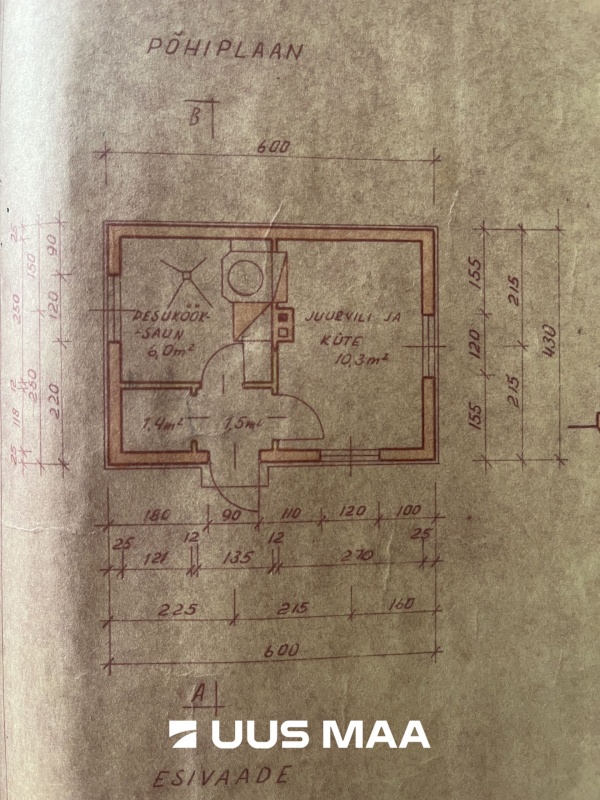 PÕHIPLAAN
B
600
25
150
250
12
250
118
25
90
120
220
PESUKÖÖK-
-SAUN
6,0m²
JUURVILI JA
KÜTE
10,3m²
1.4m²
1,5m²
155
120
155
215
215
430
180 90 110 120 100
25 12 12 25
121 135 270
225 215 160
600
A
UUS MAA
ESIVAADE